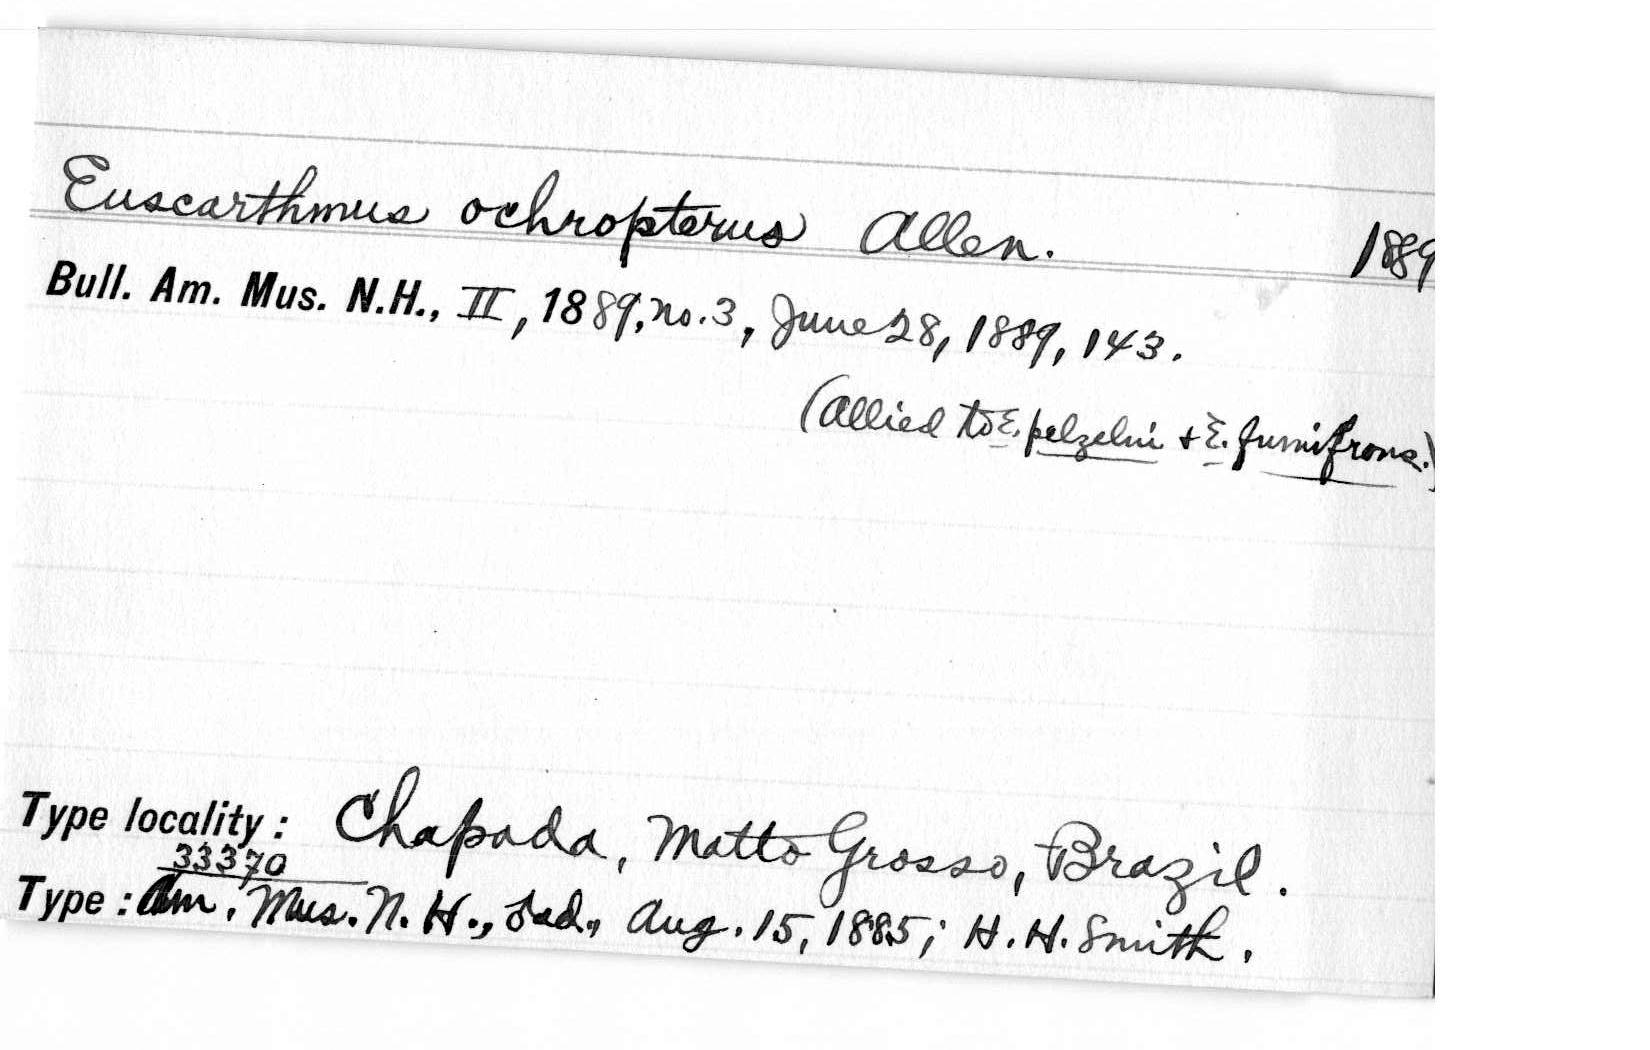 Euscarthmus ochropterus Allen. 1889
Bull. Am. Mus. N.H., II, 1889, no. 3, June 28, 1889, 143.
(Allied to E. pelzelni + E. fumifrons.)
Type locality: Chapada, Matto Grosso, Brazil.
33370
Type: Am. Mus. N. H., ad., Aug. 15, 1885; H. H. Smith.